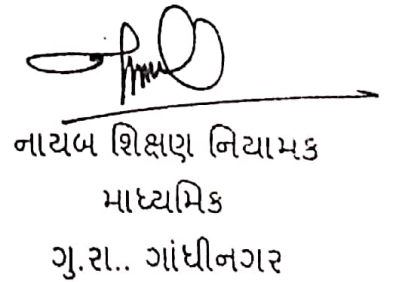 નાયબ શિક્ષણ નિયામક
માધ્યમિક
ગુ.રા.. ગાંધીનગર